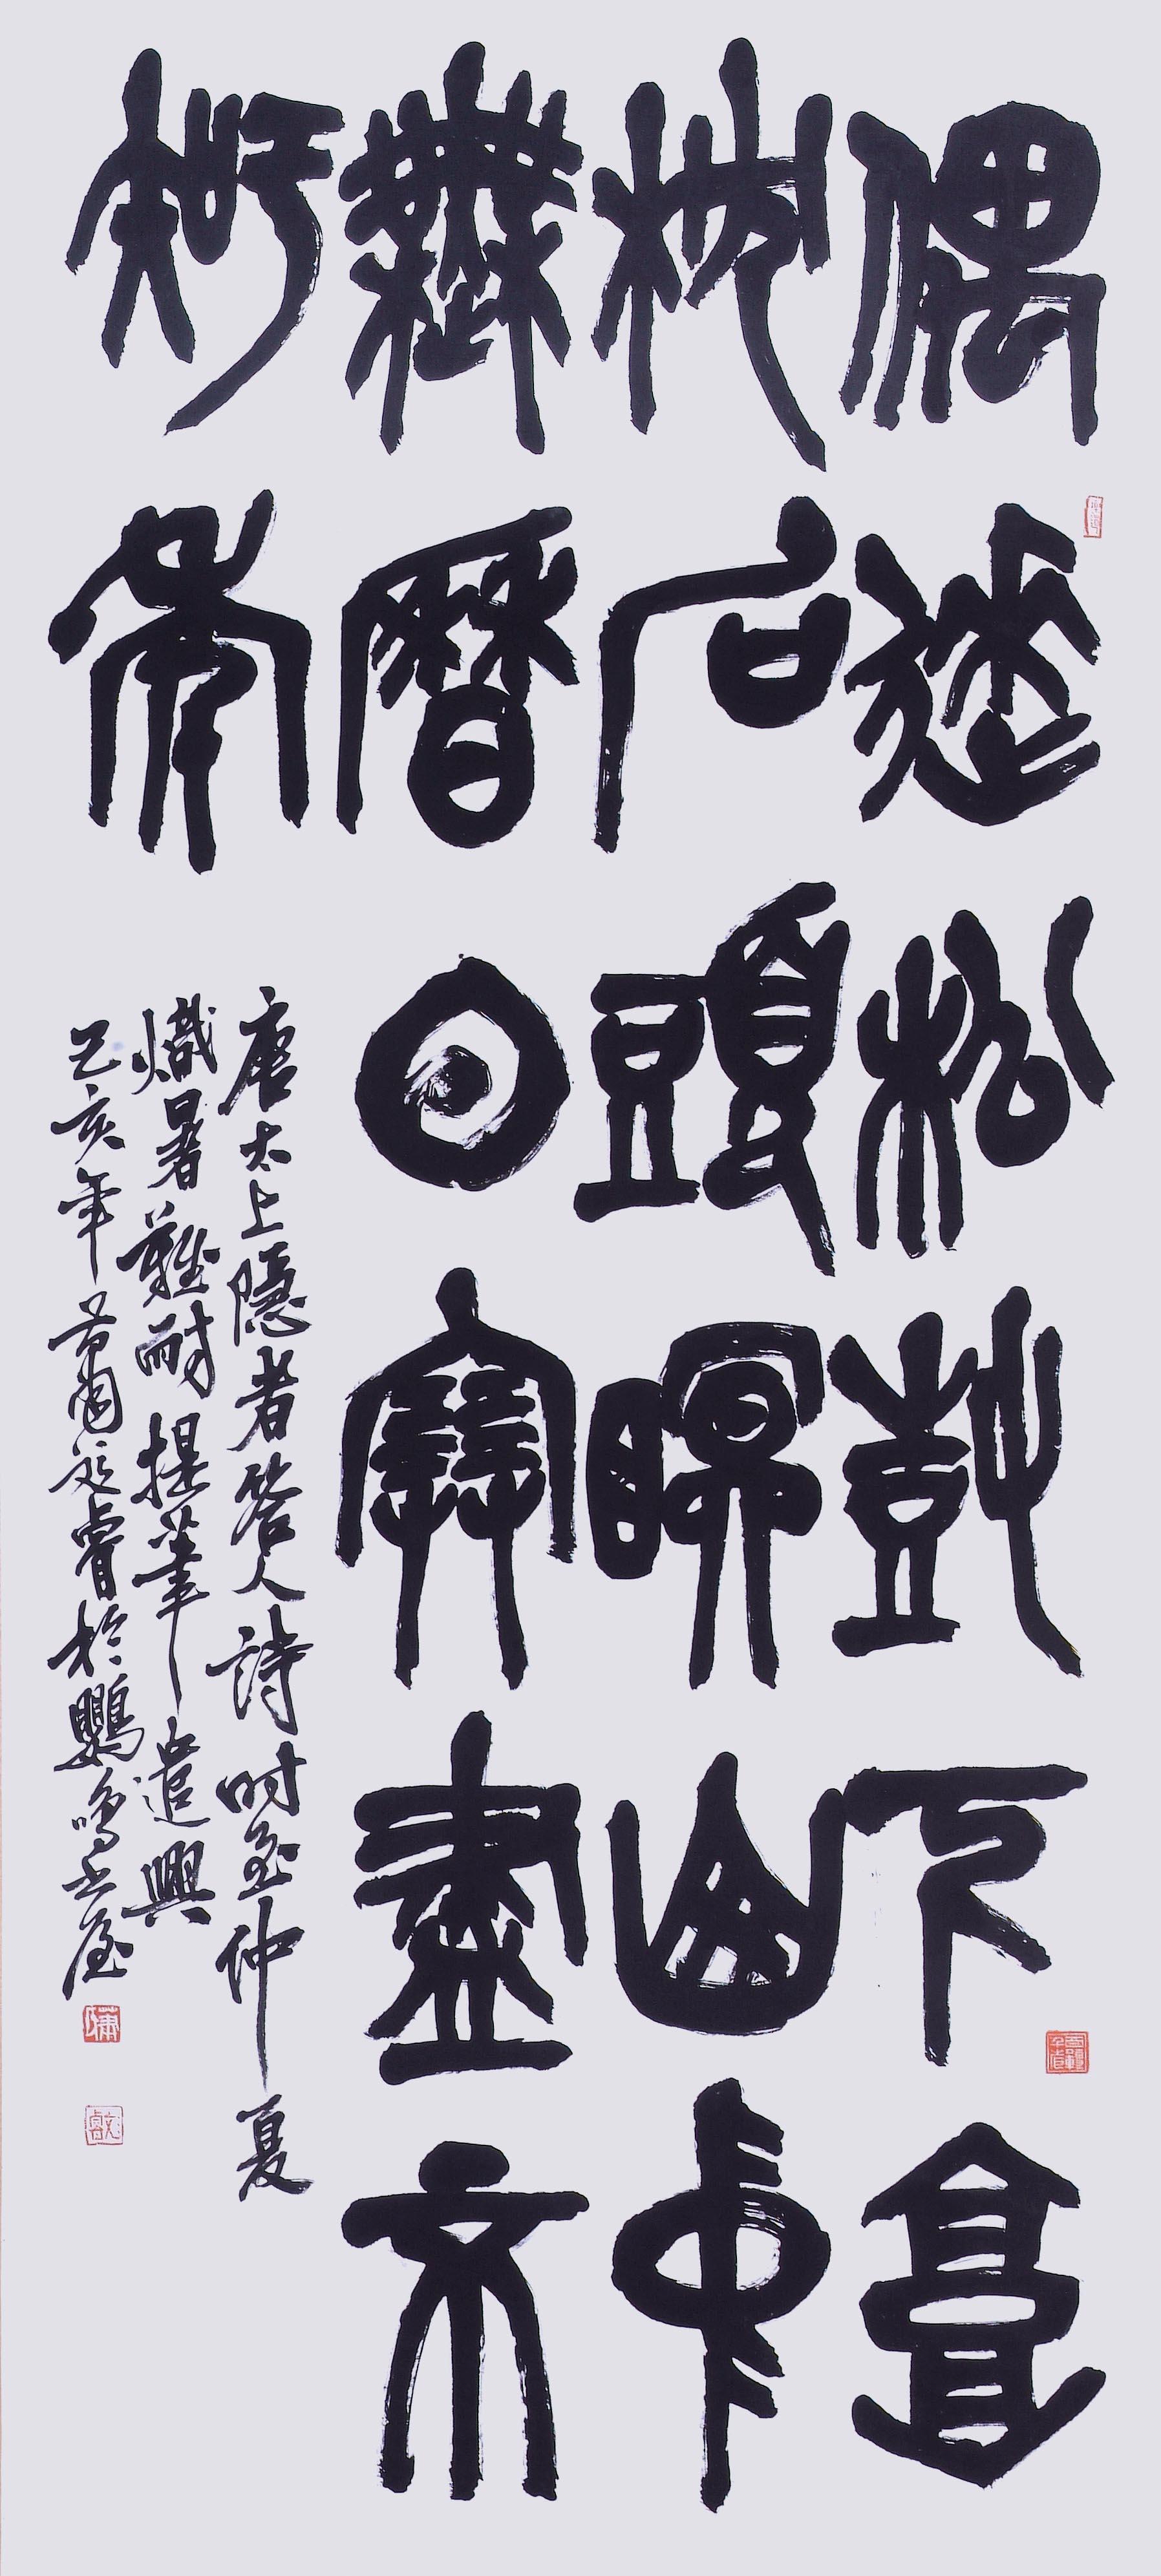 偶來松樹下高
枕石頭眠山中
無曆日寒盡不
知年
唐太上隱者答人詩時至仲夏
熾暑難耐提筆遣興
己亥年睿於鸚鳴書屋